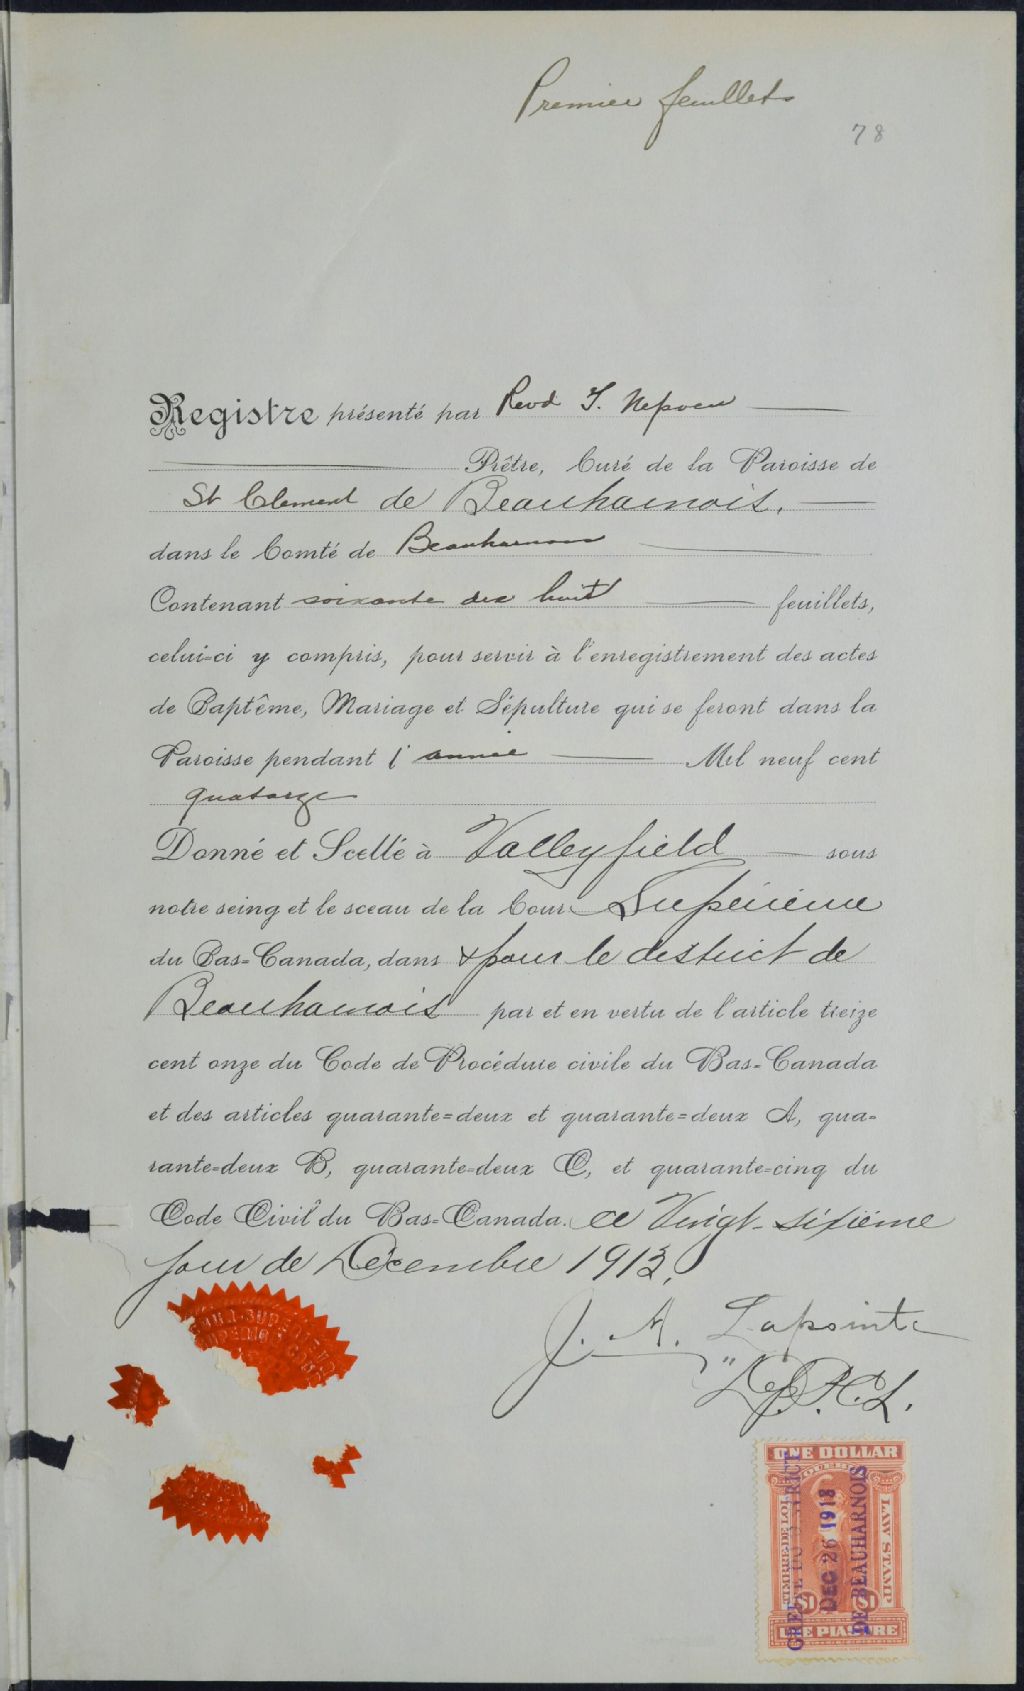 Premier feuillets
78
Registre présenté par Revd J. Nepveu
Prêtre, Curé de la Paroisse de
St Clement de Beauharnois.
dans le Comté de Beauharnois
Contenant soixante dix huit feuillets,
celui-ci y compris, pour servir à l'enregistrement des actes
de Baptême, Mariage et Sépulture qui se feront dans la
Paroisse pendant l'année Mil neuf cent
quatorze
Donné et Scellé à Valleyfield sous
notre seing et le sceau de la Cour Supérieure
du Bas-Canada, dans & pour le district de
Beauharnois par et en vertu de l'article treize
cent onze du Code de Procédure civile du Bas-Canada
et des articles quarante=deux et quarante=deux A, qua-
rante=deux B, quarante=deux C, et quarante=cinq du
Code Civil du Bas-Canada. ce Vingt-sixième
jour de Décembre 1913.
J. A. Lapointe
Dep. P.C.S.
ONE DOLLAR
QUEBEC
TIMBRE DE LOI
LAW STAMP
$1 $1
UNE PIASTRE
GREFFE DU DISTRICT
DEC 26 1913
DE BEAUHARNOIS